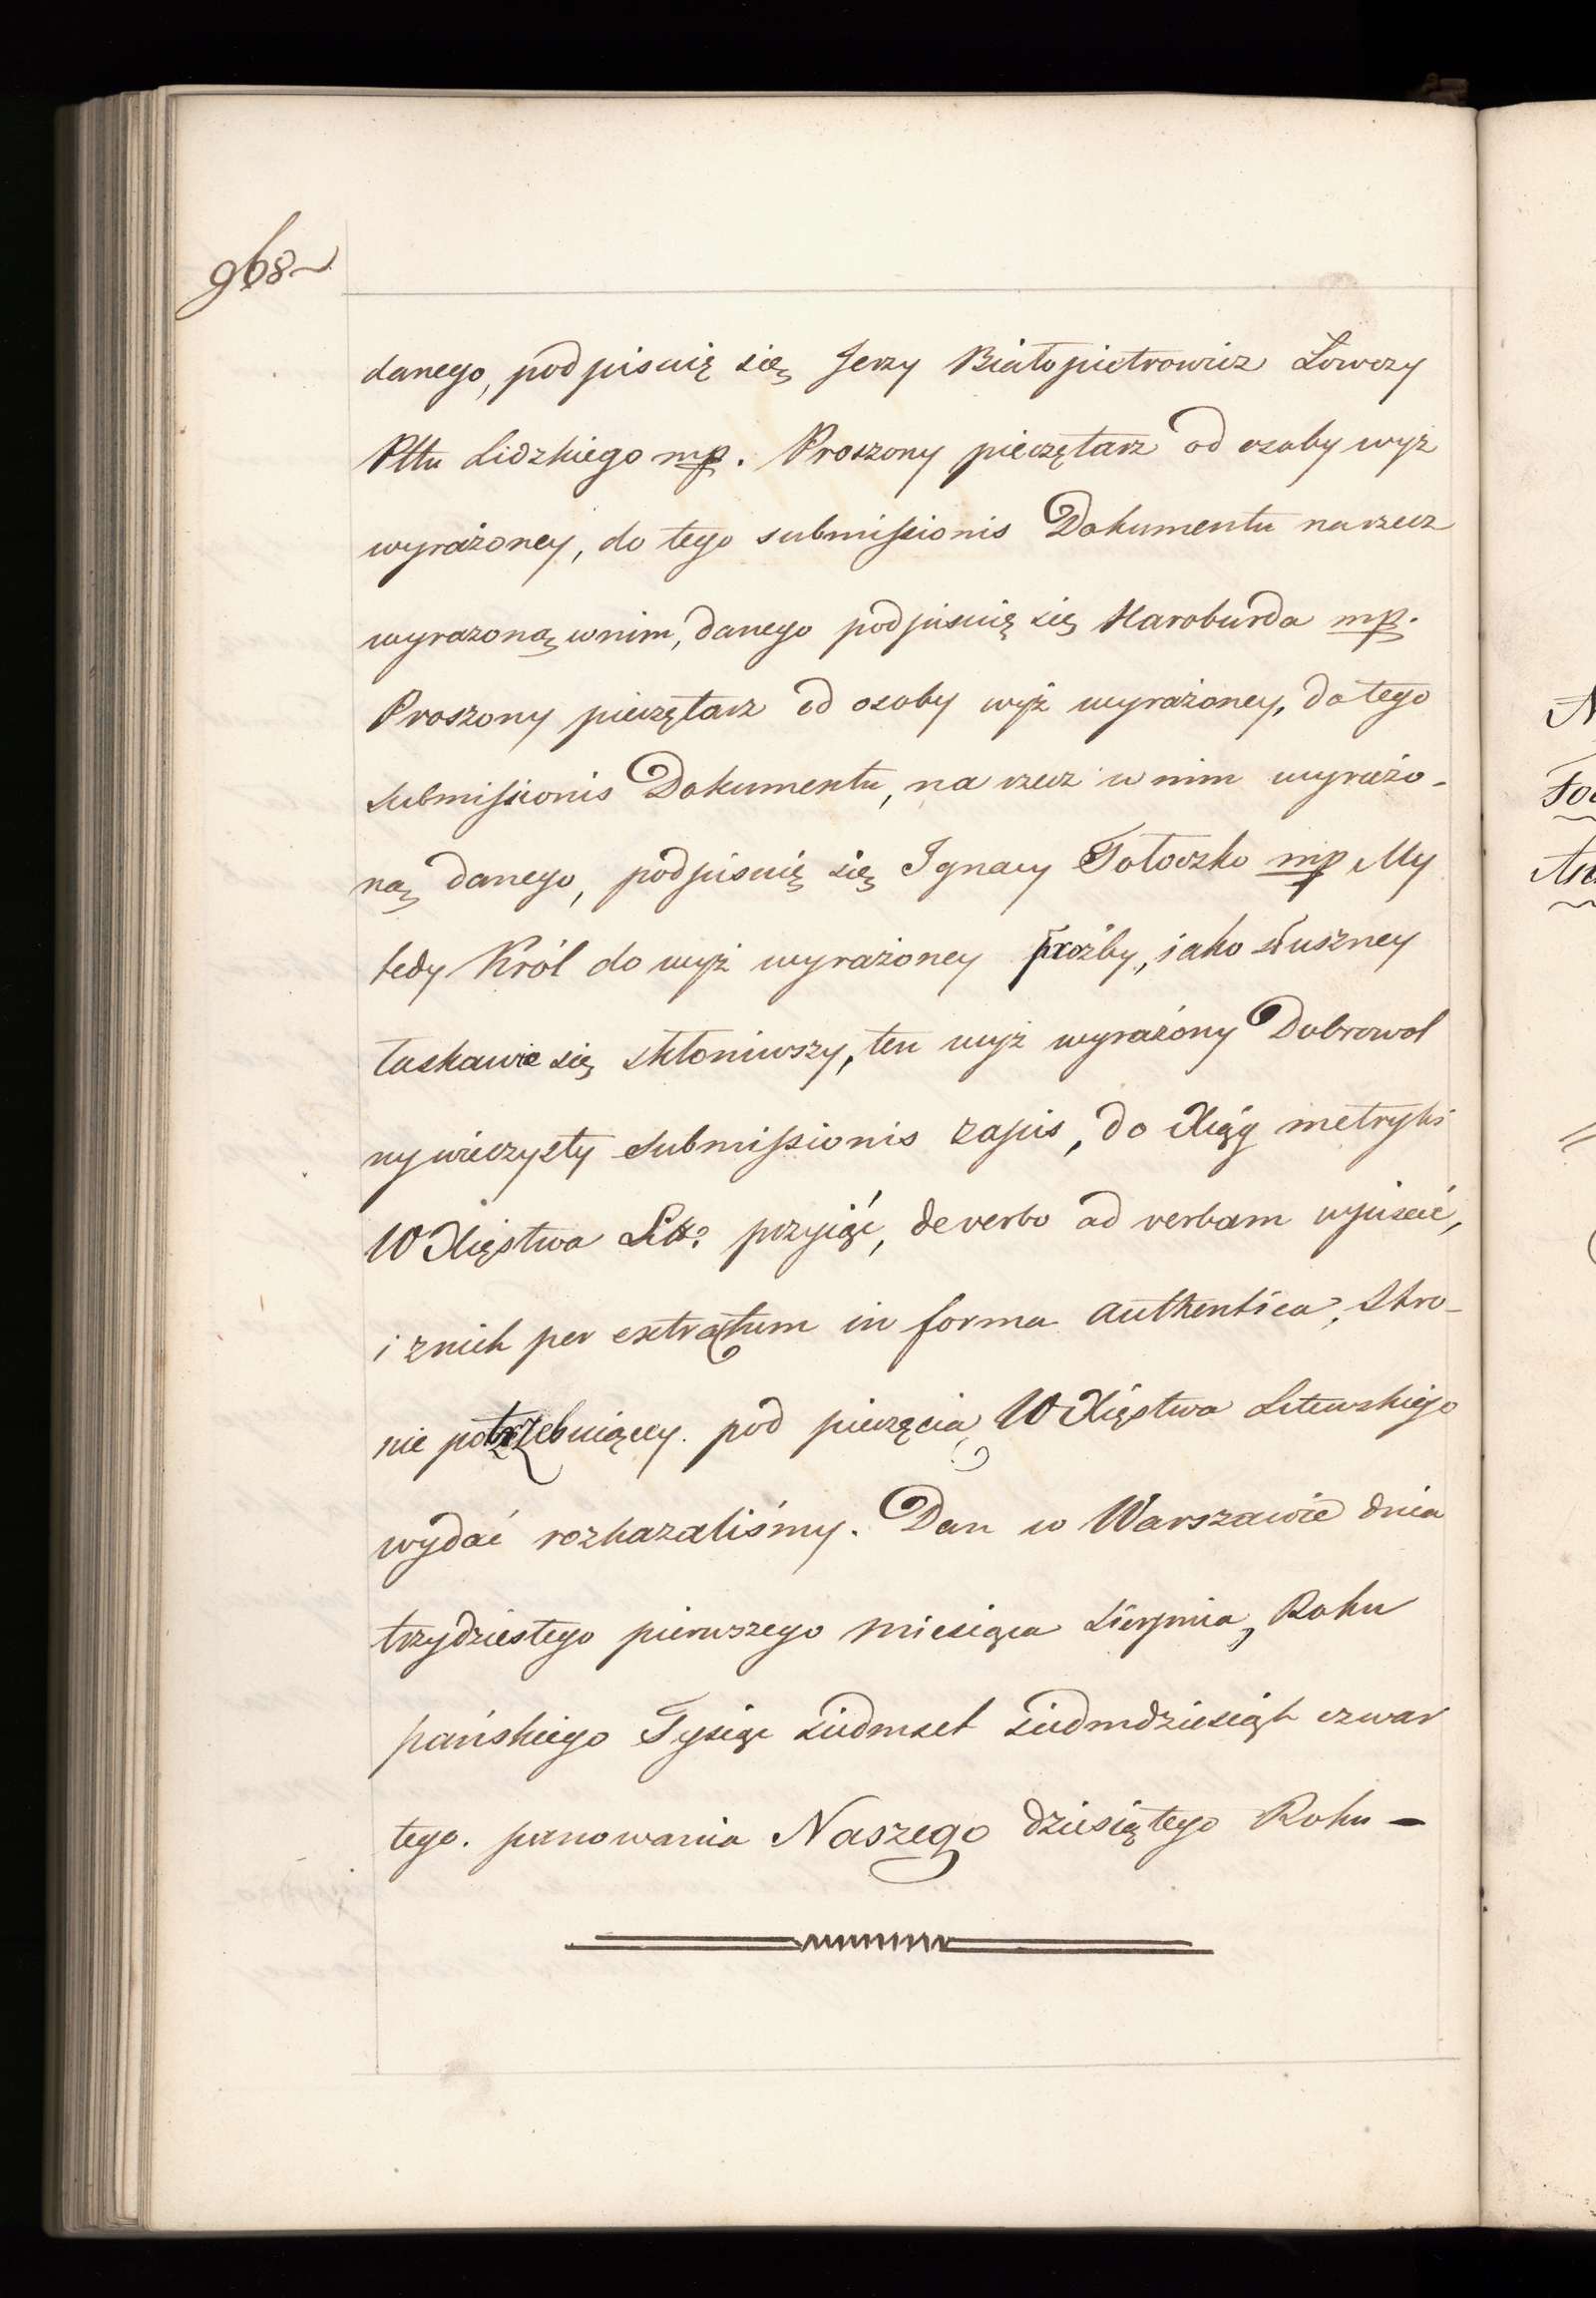 968
danego, podpisuię się Jerzy Białopiotrowicz Łowczy
Pttu Lidzkiego mp. Proszony pieczętarz od osoby wyż
wyrażoney, do tego submissionis Dokumentu na rzecz
wyrazoną w nim, danego podpisuię się Haroburda mp.
Proszony pieczętarz od osoby wyż wyrażoney, do tego
submissionis Dokumentu, na rzecz w nim wyrażo-
ną danego, podpisuię się Ignacy Tołoczko mp My
tedy Król do wyż wyrażoney proźby, iako słuszney
łaskawie się skłoniwszy, ten wyż wyrażony Dobrowol
ny wieczysty submissionis zapis, do Xiąg metryki
W Xięstwa Litt: przyiąć, de verbo ad verbam wpisać,
i z nich per extractum in forma authentica, Stro-
nie potrzebuiącey. pod pieczęcią W Xięstwa Litewskiego
wydać rozkazaliśmy. Dan w Warszawie dnia
trzydziestego pierwszego miesiąca Sierpnia, Roku
pańskiego Tysiąc siedmset siedmdziesiąt czwar
tego. panowania Naszego dziesiątego Roku -
N